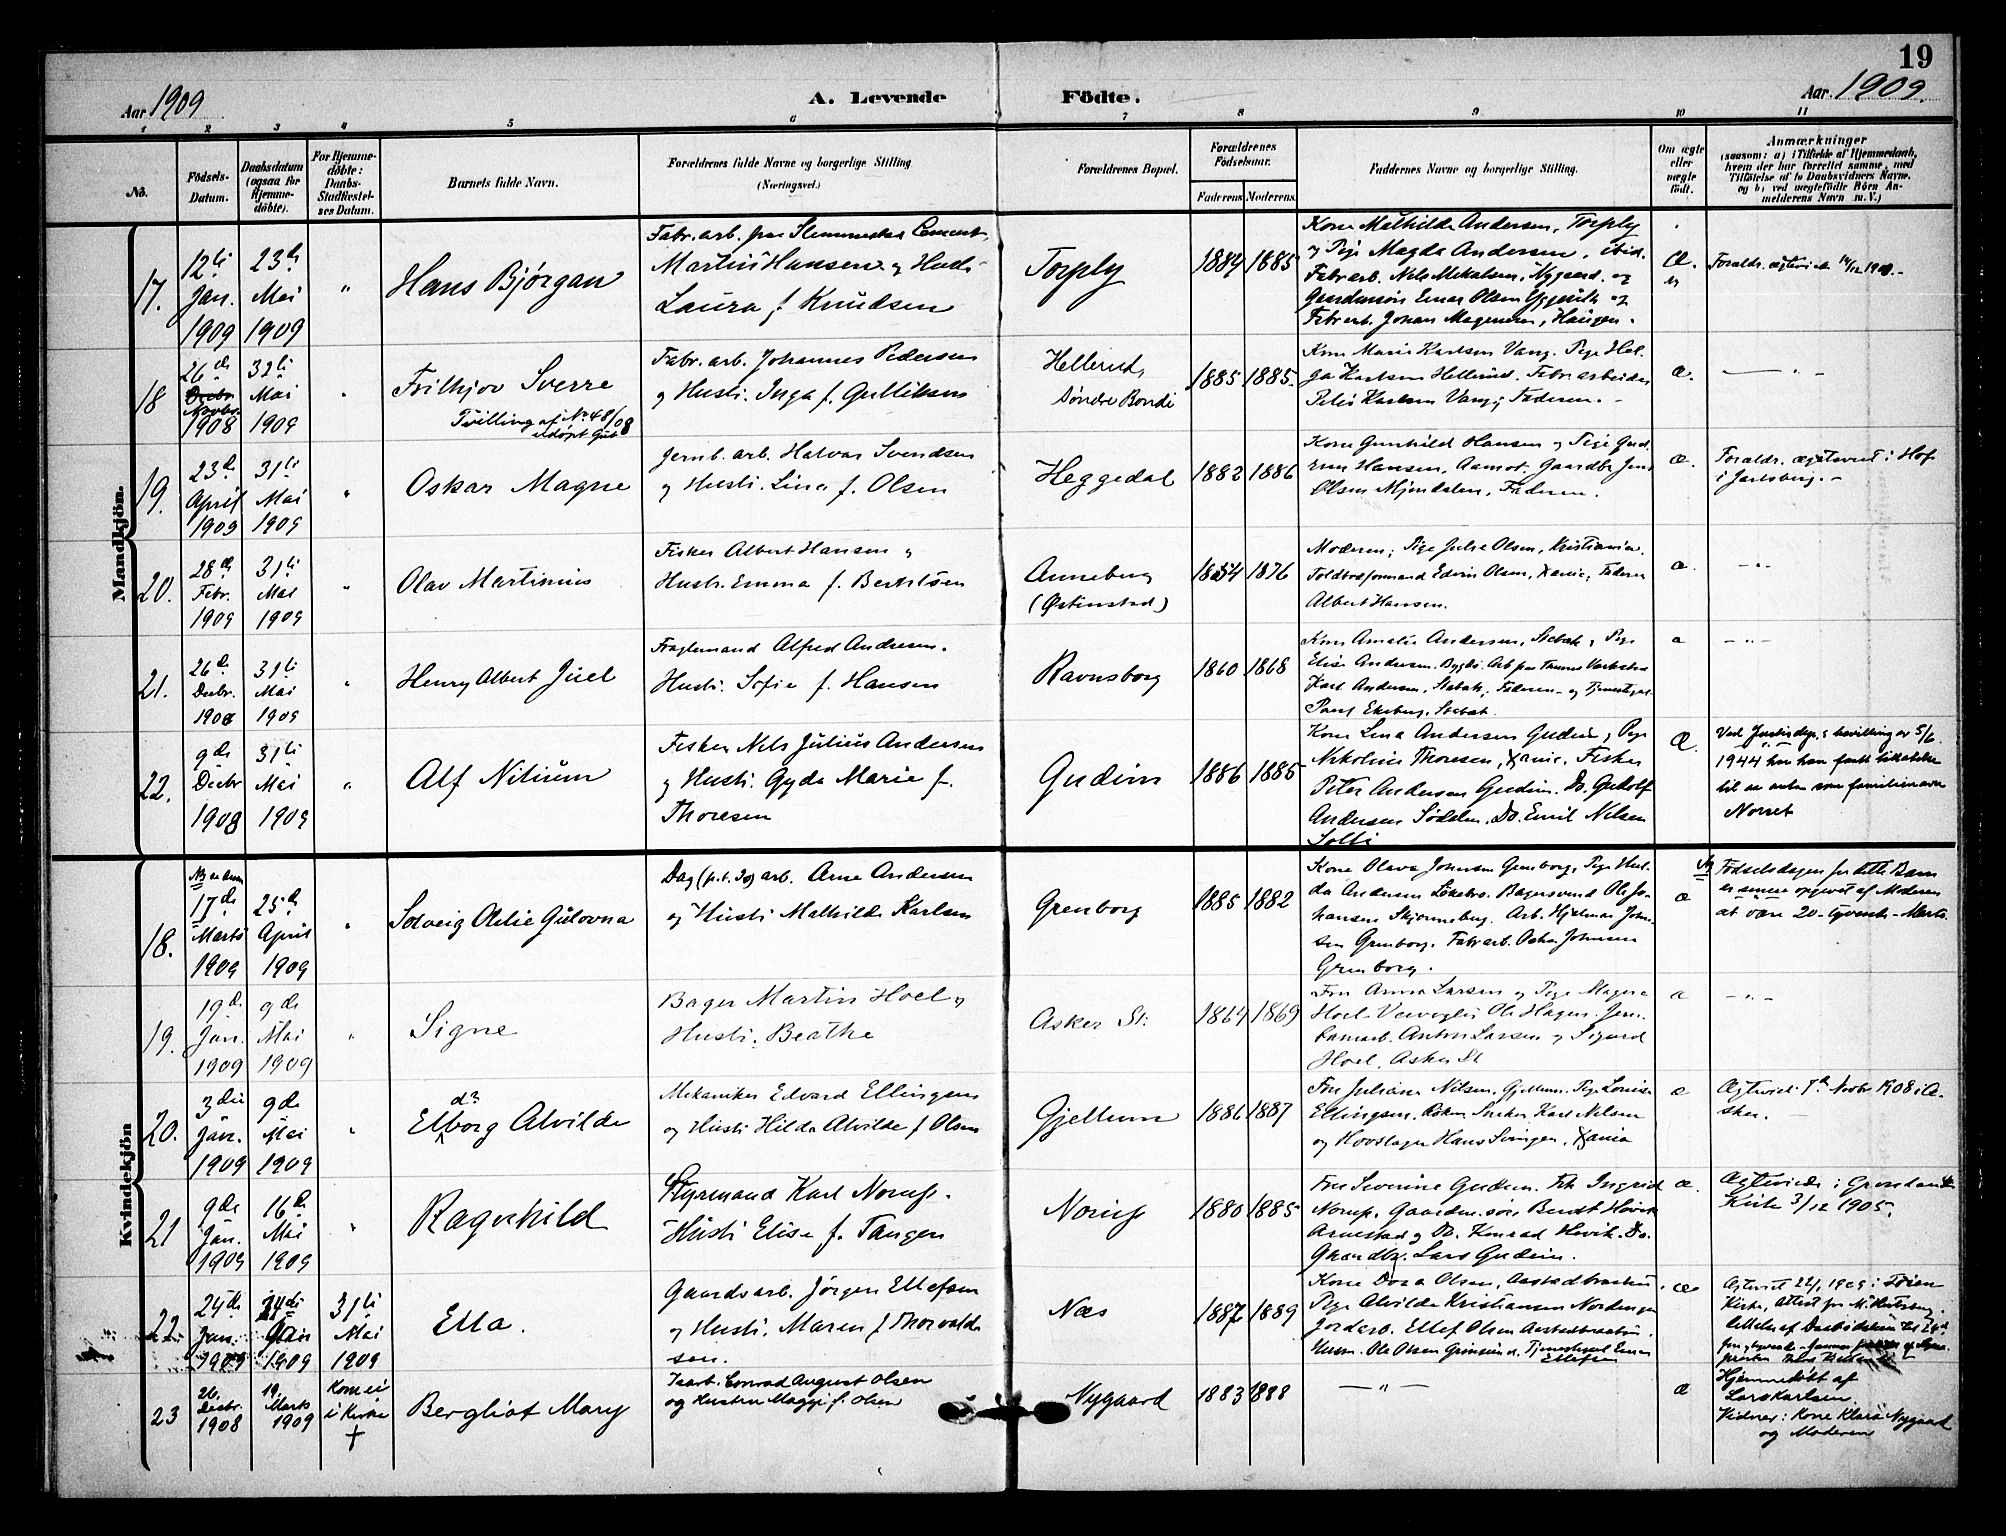 19
Aar 1909
A. Levende Födte.
Aar. 1909.
1 2 3 4 5 6 7 8 9 10 11
No.
Födsels-
Datum.
Daabsdatum
(ogsaa for
Hjemme-
döbte).
For Hjemme-
döbte:
Daabs-
Stadfæstel-
ses Datum.
Barnets fulde Navn.
Forældrenes fulde Navne og borgerlige Stilling
(Næringsvei.)
Forældrenes Bopæl.
Forældrenes
Födselsaar.
Faderens Moderens.
Faddernes Navne og borgerlige Stilling.
Om ægte
eller
uægte
födt.
Anmærkninger
(saasom: a) i Tilfælde af Hjemmedaab,
hvem der har forrettet samme, med
Tilföielse af to Daabsvidners Navne.
og b) ved uægtefödte Börn An-
melderens Navn m. V.)
Mandkjön.
17.
12te
Jan.
1909
23de
Mai
1909
"
Hans Bjørgan
Fabr. arb. paa Slemmestad Cement.
Martin Hansen og Hust.
Laura f. Knudsen
Torply
1884 1885
Kone Mathilde Andersen, Torply
og Pige Magda Andersen, ibid.
Fabr arb. Nels Mikalsen, Nygaard. og
Gaardmansøn Einar Olsen og
Fabr arb. Johan Magnusen, Haugen.
Æ.
Foraldr. ægteviede 14/12
18
26de
Novbr.
1908
Mai
1909
Frithjov Sverre
Tvilling af No 48/08
udöpt Gut
Fabr. arb. Johannes Pedersen
og Hustr. Inga f. Gulliksen
Hellerud,
Søndre Bondi
1885 1885
Kone Marie Karlsen Vang. Pige Hel-
ga Karlsen Hellerud. Fabr arbeider
Peder Karlsen Vang; Faderen. -
æ.
19.
23de
April
1909
31te
Mai
1909
"
Oskar Magne
Jernb. arb. Halvar Svendsen
og Hustr. Lina f. Olsen
Heggedal
1882 1886
Kone Gunhild Hansen og Pige Gud-
run Hansen, Aamot. Gaardbr Jens
Olsen Mjøndalen, Faderen.
æ.
Foraldr. ægteviet i Hof
i Jarlsberg. -
20.
28de
Febr.
1909
31te
Mai
1909
"
Olav Martinius
Fisker Albert Hansen og
Hustr. Emma f. Bertilsen
Anneberg
(Østenstad)
1876
Moderen; Pige Julie Olsen, Kristiania
Toldbetjent Edvin Olsen, Xania; Fader
Albert Hansen.
æ
- " -
21.
26de
Decbr.
1908
31te
Mai
1909
"
Henry Albert Juel
Fragtemand Alfred Andresen.
Hustr. Sofie f. Hansen
Ravnsborg
1860 1868
Kone Amalie Andersen, Stabæk, Pige
Elise Andersen. Bygds. Arb paa
Karl Andersen, Stabæk, Faderen - og
Paul Ekeberg. Stabæk.
æ
- " -
22.
9de
Decbr
1908
31te
Mai
1909
"
Alf Nilium
Fisker Nels Julius Andersen
og Hustr. Gyda Marie f.
Thoresen
Gudim
1886 1885
Kone Lina Andersen Gudim, Pige
Nikoline Thoresen, Xania. Fisker
Peter Andersen Gudim. Do. Gudolf
Andersen Sødolen. Do. Emil Nelsen
Solli
Æ
Ved Justisdep.s bevilling av 5/6
1944 har han faatt tillatelse
til aa anta som familienavn
Norset
Kvindekjön
18.
17de
Marts
1909
25de
April
1909
"
Solveig Otilie Gulovna
Dag (p.t. ) arb. Arne Andersen
og Hustr. Mathilde Karlsen
Grenborg
1885 1882
Kone Olava Johnsen Grenborg, Pige Hul-
da Andersen Løkebo. Bagersvend Ole Jo-
hansen Skjønneberg. Arb. Hjalmar John-
sen Grenborg. Fabr arb. Oskar Johnsen
Grenborg.
æ
NB Födselsdagen for dette Barn
er senere opgivet af Moderen
at være 20-tyvende-Marts.
19.
19de
Jan.
1909
9de
Mai
1909
"
Signe
Bager Martin Hoel og
Hustr. Beathe
Asker St:
1864 1869
Fru Anna Larsen og Pige Magna
Hoel. Ole Hagen Jern-
banearb. Anton Larsen og Sigurd
Hoel, Asker St
æ
- " -
20.
3die
Jan.
1909
9de
Mai
1909
"
d?
Elborg Alvilde
Mekaniker Edvard Ellingsen
og Hustr Hilda Alvilde f Olsen
Gjellum
1886 1887
Fru Juliane Nilsen, Gjellum. Pige Louise
Ellingsen. Asker. Snekker Karl Nilsen
og Hovslager Hans Svingen, Xania
æ
Ægteviet 7de Novbr 1908 i A-
sker.
21
9de
Jan.
1909
16de
Mai
1909
"
Ragnhild
Styrmand Karl Norup.
Hustr Elise f. Tangen
Norup
1880 1885
Fru Severine Gudim. Frk Ingrid
Norup. Gaardmansøn Berndt Høvik
Arnestad og Do. Konrad Høvik. Do.
Gaardbr. Lars Gudim.
æ.
Ægteviede i Grønlands
Kirke 3/12 1905.
22.
24de
Jan.
1909
1909
31te
Mai
1909
Ella.
Gaardsarb. Jørgen Ellefsen
og Hustr. Maren f Thorvald-
sen.
Næs
1887 1889
Kone Dora Olsen, Aastadbraaten
Pige Alvilde Kristiansen Nordengen
Jordarb. Ellef Olsen Aastadbraaten.
Husm. Ole Olsen Grinsund. Einar
Ellefsen
æ
Ægteviet 22/1 1909 i Tøien
Kirke,
23
26.
Decbr.
1908
19.
Marts
1909
Kom ei
i Kirke
+
Bergliot Mary
Isarb. Conrad August Olsen
og Hustru Maggi f. Olsen
Nygaard
1883 1888
- " -
æ
Hjemmedöbt af
Lars Karlsen.
Vidner: Kone Klara Nygaard
og Moderen